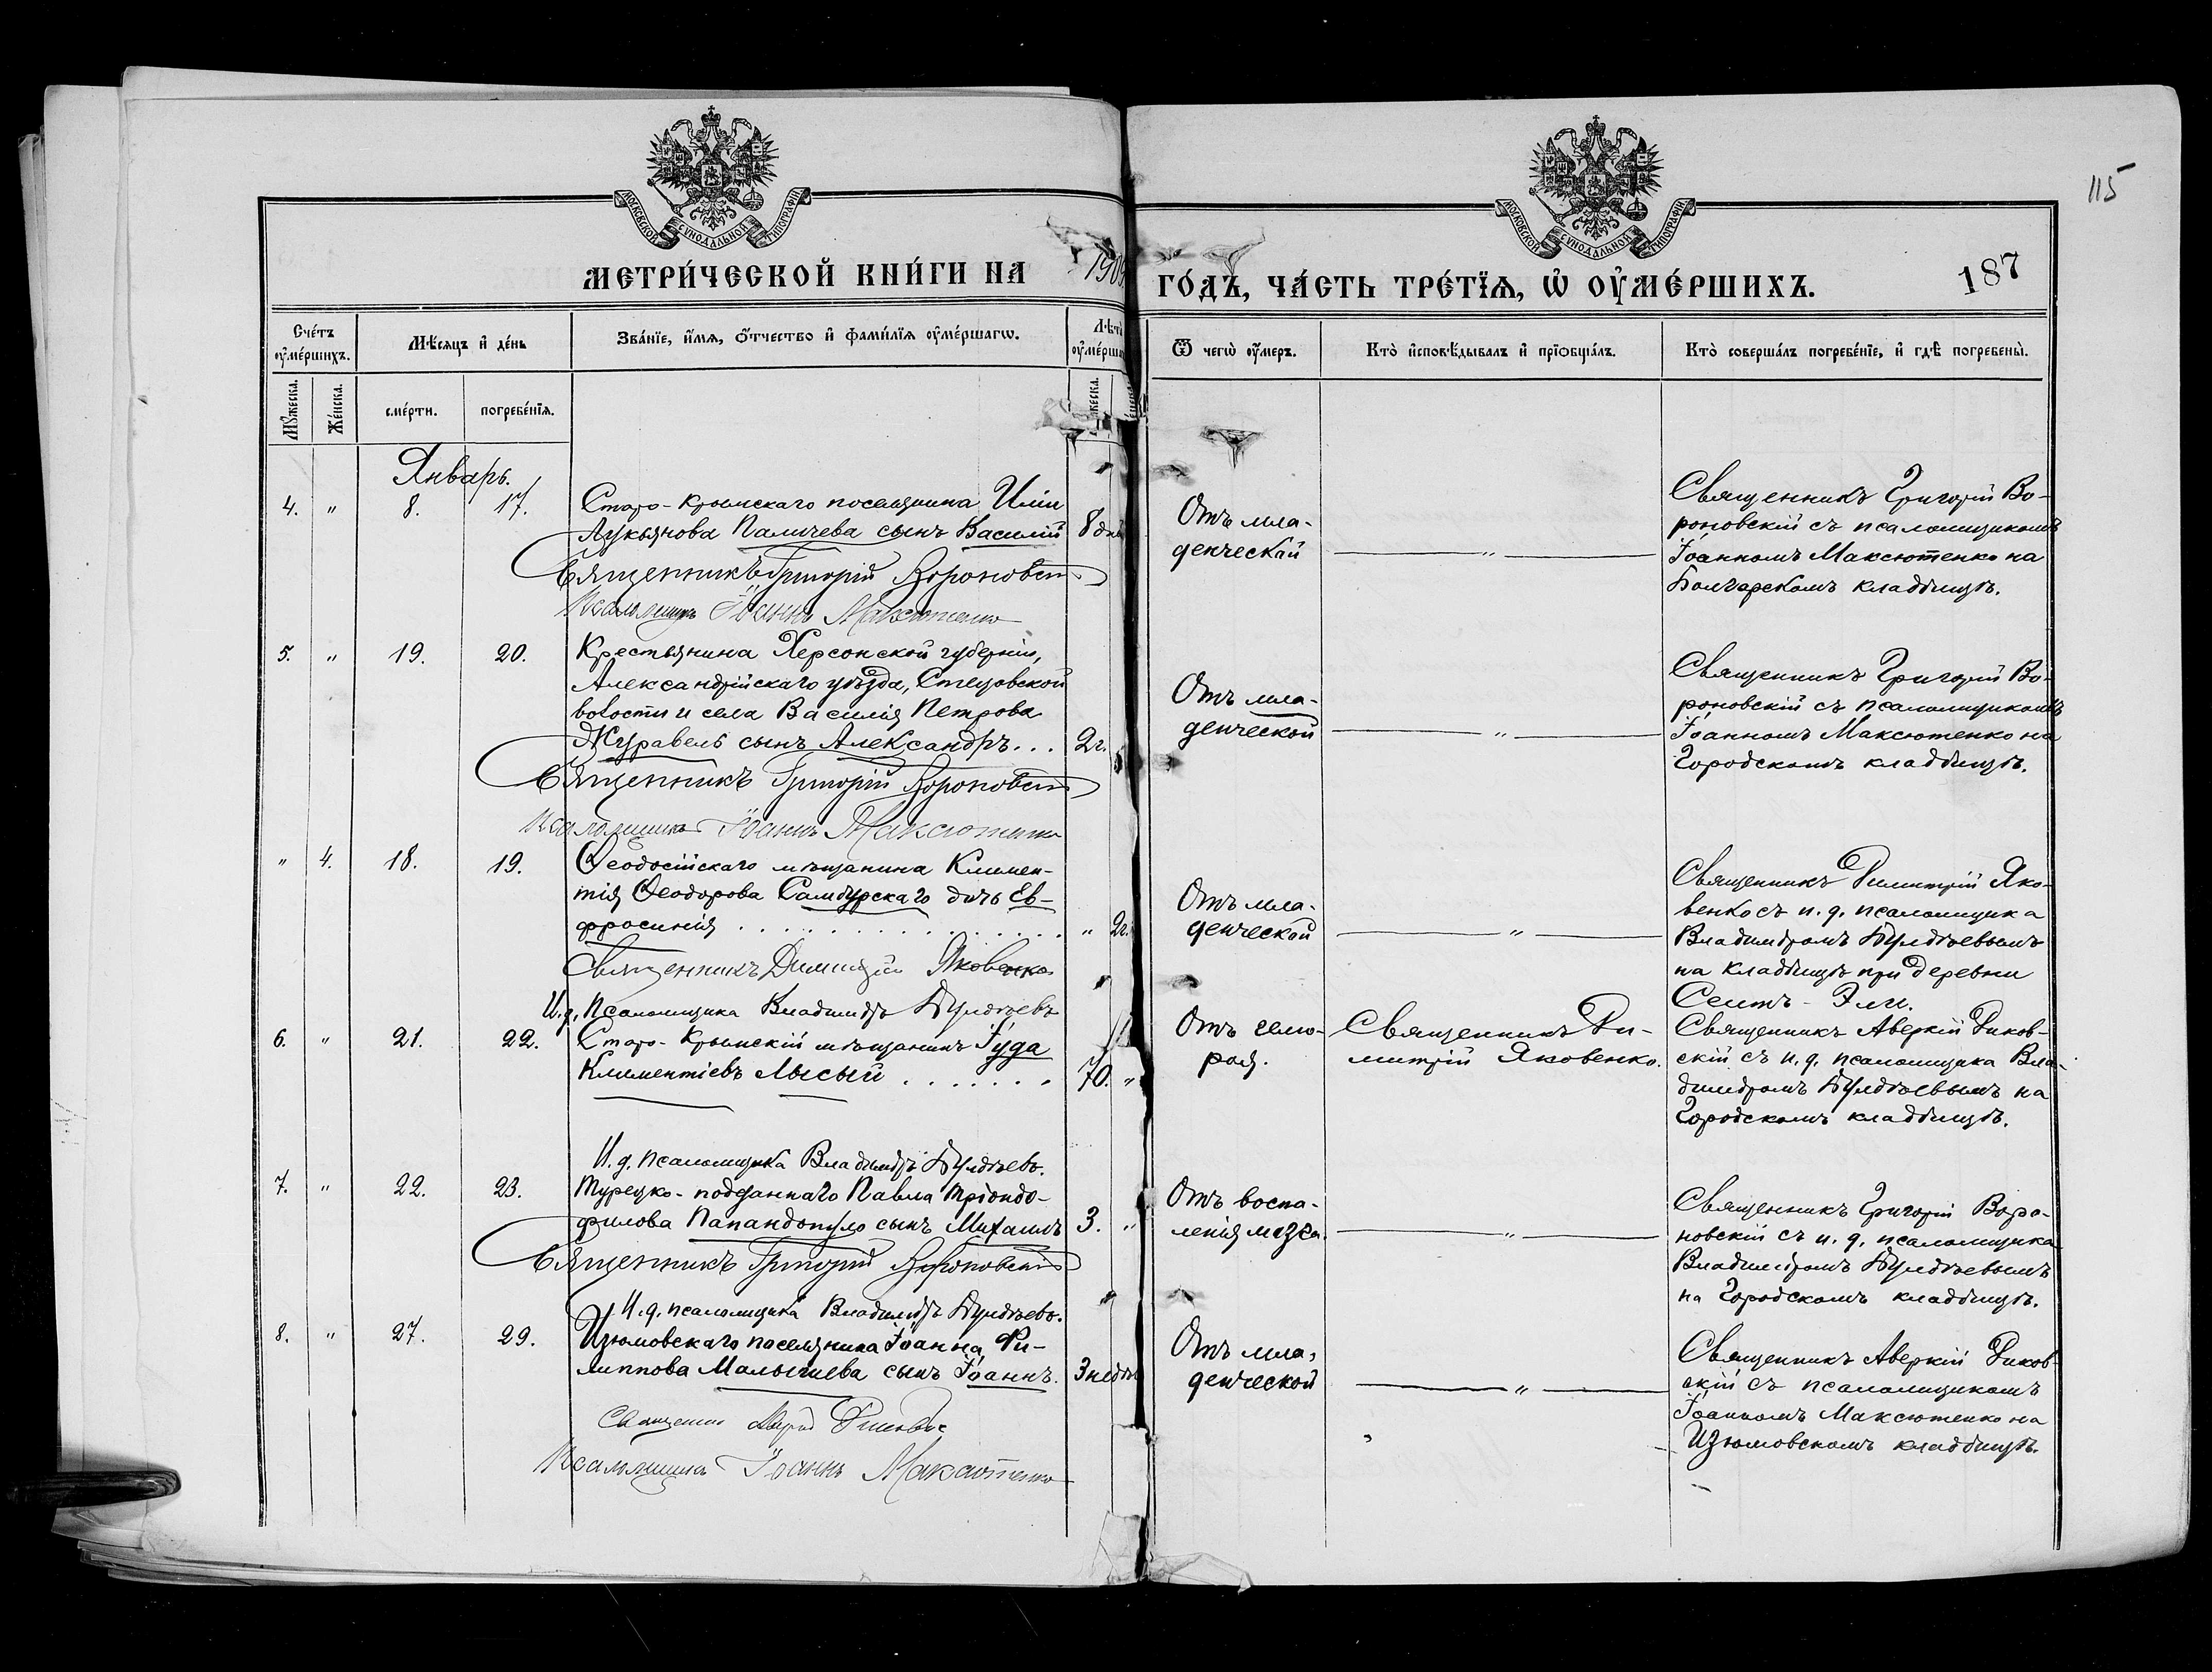 115
МОСКОВСКОЙ СУНОДАЛЬНОЙ ТИПОГРАФІИ
МОСКОВСКОЙ СУНОДАЛЬНОЙ ТИПОГРАФІИ
МЕТРИ́ЧЕСКОЙ КНИ́ГИ НА 190
ГО́ДЪ, ЧА́СТЬ ТРЕ́ТЇѦ, Ѡ҆ ОУ҆МЕ́РШИХЪ.
187
Сче́тъ оу҆ме́ршихъ.
Мѣ́сѧцъ и҆ де́нь
Зва́нїе, и҆́мѧ, ѻ҆́тчество и҆ фами́лїѧ оу҆ме́ршагѡ.
Лѣ́т
оу҆ме́рша
Ѿ чегѡ̀ оу҆́меръ.
Кто̀ и҆сповѣ́дывалъ и҆ прїѡбща́лъ.
Кто̀ соверша́лъ погребе́нїе, и҆ гдѣ̀ погребены̀.
Мꙋ́жеска.
Же́нска.
сме́рти.
погребе́нїѧ.
Январь.
4. " 8. 17.
Старо-Крымскаго поселянина Иліи
Лукьянова Паличева сынъ Василій 8 дн
Священникъ Григорій Вороновскій
Псаломщикъ Іоаннъ Максютенко
Отъ мла-
денческой
"
Священникъ Григорій Во-
роновскій съ псаломщикомъ
Іоанномъ Максютенко на
Болгарскомъ кладбищѣ.
5. " 19. 20.
Крестьянина Херсонской губерніи,
Александрійскаго уѣзда, Стецовской
волости и села Василія Петрова
Журавель сынъ Александръ... 2 г.
Священникъ Григорій Вороновскій
Псаломщикъ Іоаннъ Максютенко
Отъ мла-
денческой
"
Священникъ Григорій Во-
роновскій съ псаломщикомъ
Іоанномъ Максютенко на
Городскомъ кладбищѣ.
" 4. 18. 19.
Ѳеодосійскаго мѣщанина Климен-
тія Ѳеодорова Самбурскаго дочь Ев-
фросинія . . . . . . . . " 2 г.
Священникъ Димитрій Яковенко
И. д. Псаломщика Владиміръ Булдѣевъ
Отъ мла-
денческой
"
Священникъ Димитрій Яко-
венко съ и. д. псаломщика
Владиміромъ Булдѣевымъ
на кладбищѣ при деревни
Сеитъ-Эли.
6. " 21. 22.
Старо-Крымскій мѣщанинъ Іуда
Климентіевъ Лысый . . . . . . . 70. "
И. д. псаломщика Владиміръ Булдѣевъ.
Отъ гемо-
роя.
Священникъ Ди-
митрій Яковенко.
Священникъ Аверкій Диков-
скій съ и. д. псаломщика Вла-
диміромъ Булдѣевымъ на
Городскомъ кладбищѣ.
7. " 22. 23.
Турецко-подданнаго Павла Тріондо-
филова Папандопуло сынъ Михаилъ 3. "
Священникъ Григорій Вороновскій
И. д. псаломщика Владиміръ Булдѣевъ.
Отъ воспа-
ленія мозга.
"
Священникъ Григорій Воро-
новскій съ и. д. псаломщика
Владиміромъ Булдѣевымъ
на Городскомъ кладбищѣ.
8. " 27. 29.
Изюмовскаго поселянина Іоанна Фи-
липпова Малычева сынъ Іоаннъ. 3 недѣ
Псаломщикъ Іоаннъ Максютенко
Отъ мла-
денческой
"
Священникъ Аверкій Диков-
скій съ псаломщикомъ
Іоанномъ Максютенко на
Изюмовскомъ кладбищѣ.